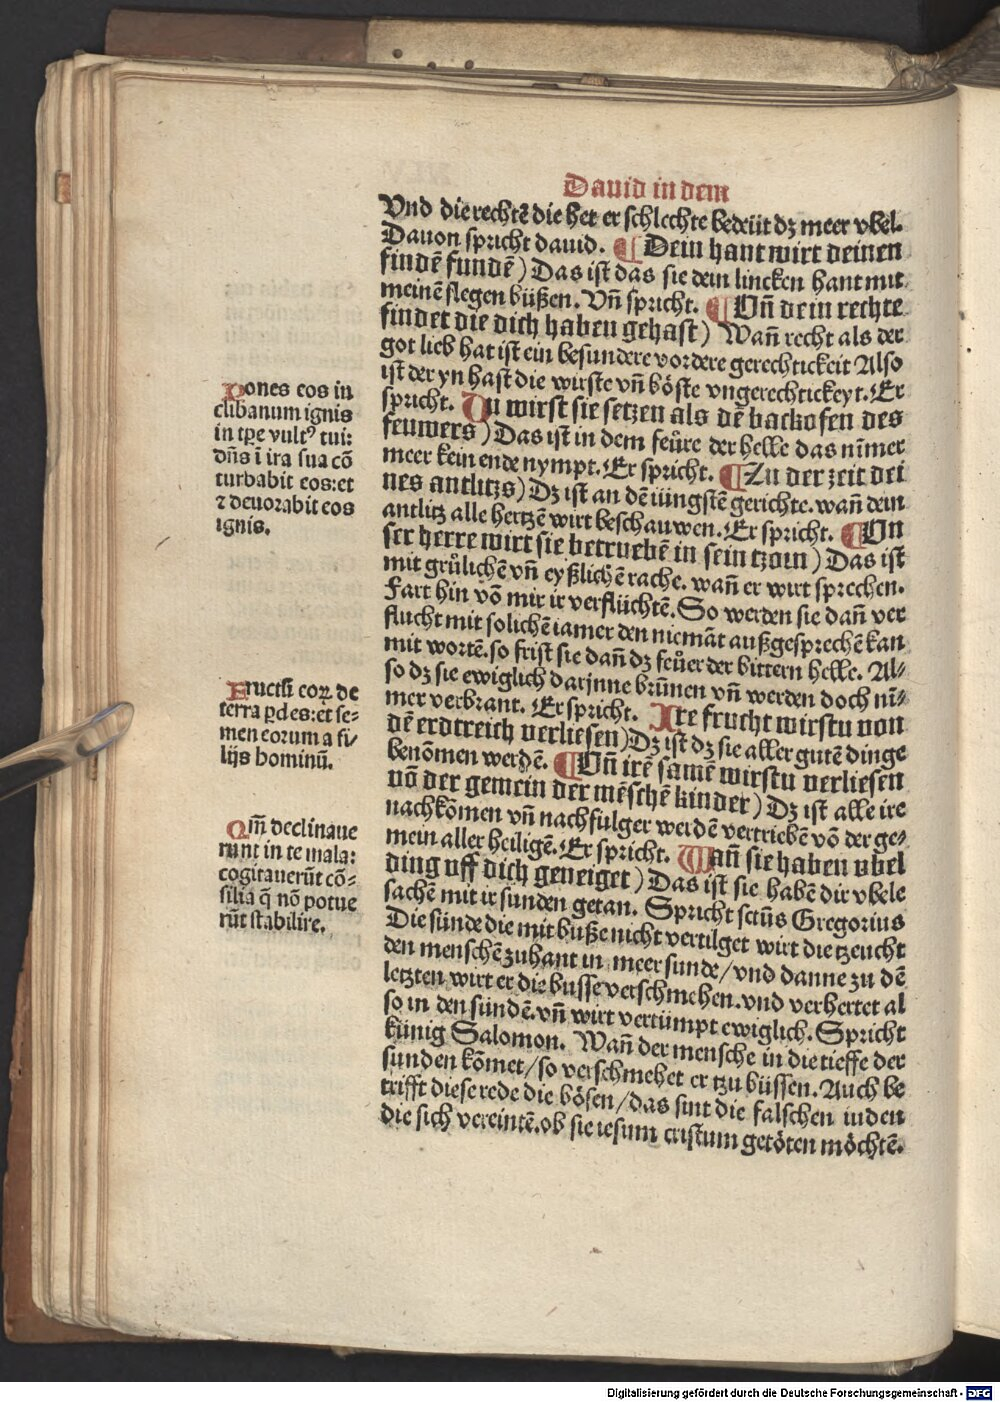 Dauid in dem
Vnd die rechtē die het er schlechte bedeüt dz meer vbel.
Dauon spricht dauid. ¶ Dein hant wirt deinen
findē fundē) Das ist das sie dein lincken hant mit
meinē slegen büßen. Vn̄ spricht. ¶ Vn̄ dein rechte
findet die dich haben gehast) Wan̄ recht als der
got lieb hat ist ein besundere vordere gerechtickeit Also
ist der yn hast die wirste vn̄ böste vngerechtickeyt. Er
spricht. Du wirst sie setzen als dē backofen des
feuwers) Das ist in dem feüre der helle das nīmer
meer kein ende nympt. Er spricht. ¶ Zu der zeit dei
nes antlitzs) Dz ist an dē iüngstē gerichte. wan̄ dein
antlitz alle hertzē wirt beschauwen. Er spricht. ¶ Vn
ser herre wirt sie betruebē in sein tzorn) Das ist
mit grůlichē vn̄ eyßlichē rache. wan̄ er wirt sprechen.
Fart hin vō mir ir verflüchtē. So werden sie dan̄ ver
flucht mit solichē iamer den niemāt außgesprechē kan
mit wortē. so frist sie dan̄ dz feůer der bittern helle. Al⸗
so dz sie ewiglich darjnne brūnen vn̄ werden doch nī⸗
mer verbrant. Er spricht. Ire frucht wirstu von
dē erdtreich verliesen) Dz ist dz sie aller gutē dinge
benōmen werdē. ¶ Vn̄ irē samē wirstu verliesen
vō der gemein der mēschē kinder) Dz ist alle ire
nachkōmen vn̄ nachfulger werdē vertriebē vō der ge⸗
mein aller heiligē. Er spricht. Wan̄ sie haben vbel
ding vff dich geneiget) Das ist sie habē dir vbele
sachē mit ir sunden getan. Spricht sctūs Gregorius
Die sünde die mit buße nicht vertilget wirt die tzeucht
den menschē zuhant in meer sunde/vnd danne zu dē
letzten wirt er die busse verschmehen. vnd verhertet al
so in den sündē. vn̄ wirt vertümpt ewiglich. Spricht
künig Salomon. Wan̄ der mensche in die tieffe der
sunden kōmet/so verschmehet er tzu büssen. Auch be
trifft diese rede die bösen/das sint die falschen iuden
die sich vereintē. ob sie iesum cristum getöten möchtē.
Pones eos in
clibanum ignis
in tp̄e vultꝰ tui:
dn̄s ī ira sua cō
turbabit eos: et
⁊ deuorabit eos
ignis.
Fructū eoꝝ de
terra ꝑdes: et se⸗
men eorum a fi⸗
lijs hominū.
Qm̄ declinaue
runt in te mala:
cogitauerūt cō⸗
silia q̄ nō potue
rūt stabilire.
Digitalisierung gefördert durch die Deutsche Forschungsgemeinschaft - DFG